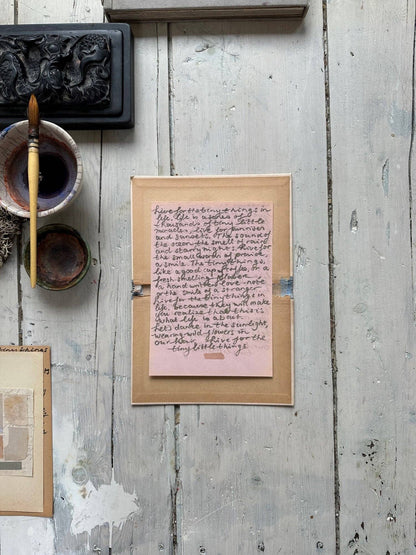 Live for the tiny things in
life. Life is a series of
thousands of tiny little
miracles, live for sunrises
and sunsets. The sound of
the ocean, the smell of rain
and starry nights. Live for
the small words of praise,
a smile. The tiny things,
like a good cup of coffee, or a
fresh smelling flower
A hand written love-note
or the smile of a stranger.
Live for the tiny things in
life, because they will make
you realize that this is
what life is about.
Let's dance in the sunlight,
wearing wild flowers in
our hair. Live for the
tiny little things